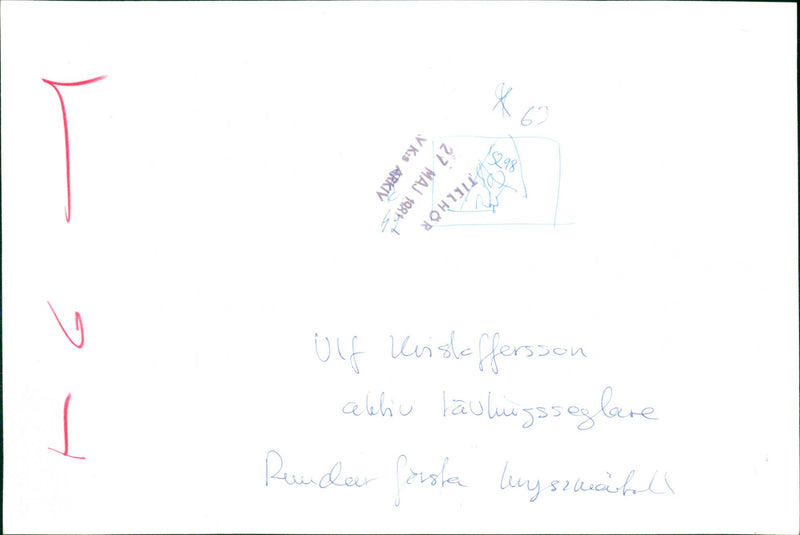 63
5298
TILLHÖR
27 MAJ 1981
VK:s ARKIV
Ulf Kristoffersson
aktiv tävlingsseglare
Rundar första kryssmärket